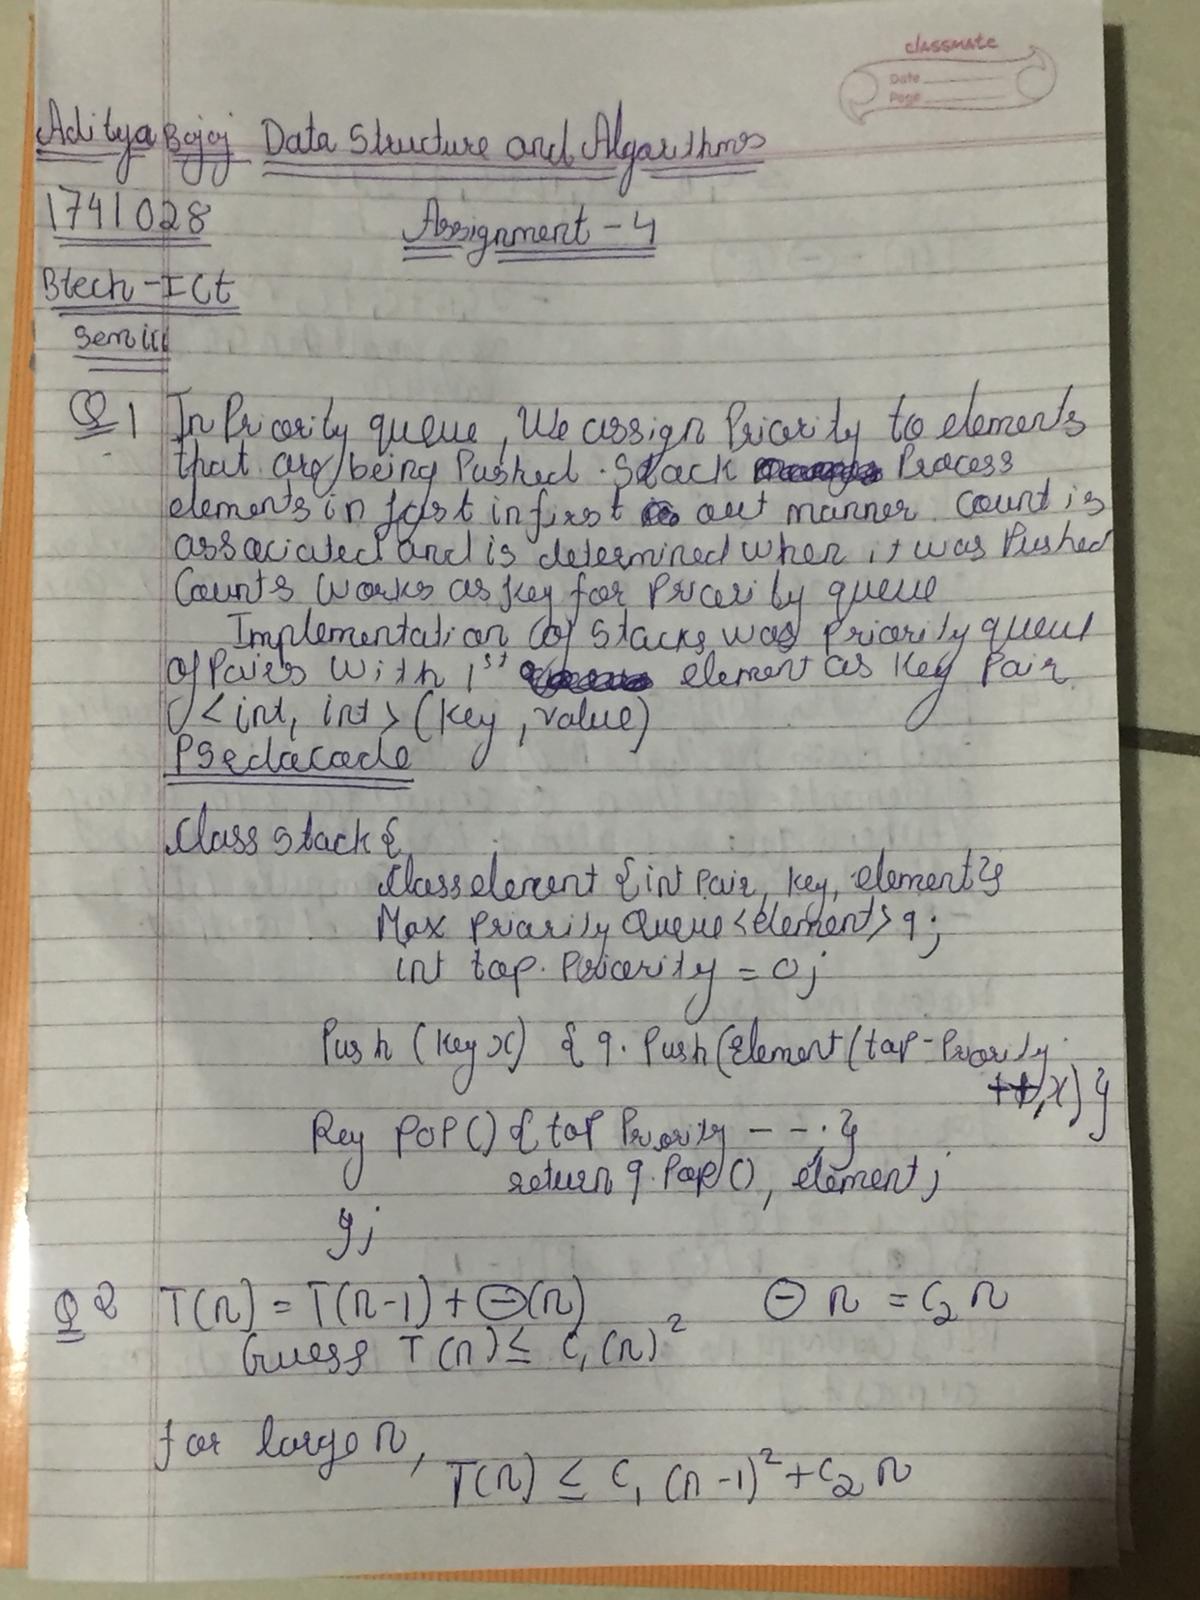 classmate
Date
Page
Aditya Bajaj Data Structure and Algorithms
1741028
Assignment - 4
Btech - ICt
Sem III
Q1 In Priority queue, We assign Priority to elements
that are being Pushed. Stack Process
elements in last in first out manner. Count is
associated and is determined when it was Pushed
Counts works as key for Priority queue
Implementation of stacks was Priority queue
of Pairs with 1st element as key Pair
<int, int> (key, value)
Psedacode
Class stack {
Class element { int Pair, key, element }
Max Priority Queue <element> q;
int top. Priority = 0;
Push (key x) { q. Push (Element (top - Priority
++, x) }
Key POP() { top Priority - - . }
return q. Pop (), element;
};
Q2 T(n) = T(n-1) + Θ(n) Θ n = C₂ n
Guess T(n) ≤ C₁ (n)²
for large n,
T(n) ≤ C₁ (n-1)² + C₂ n